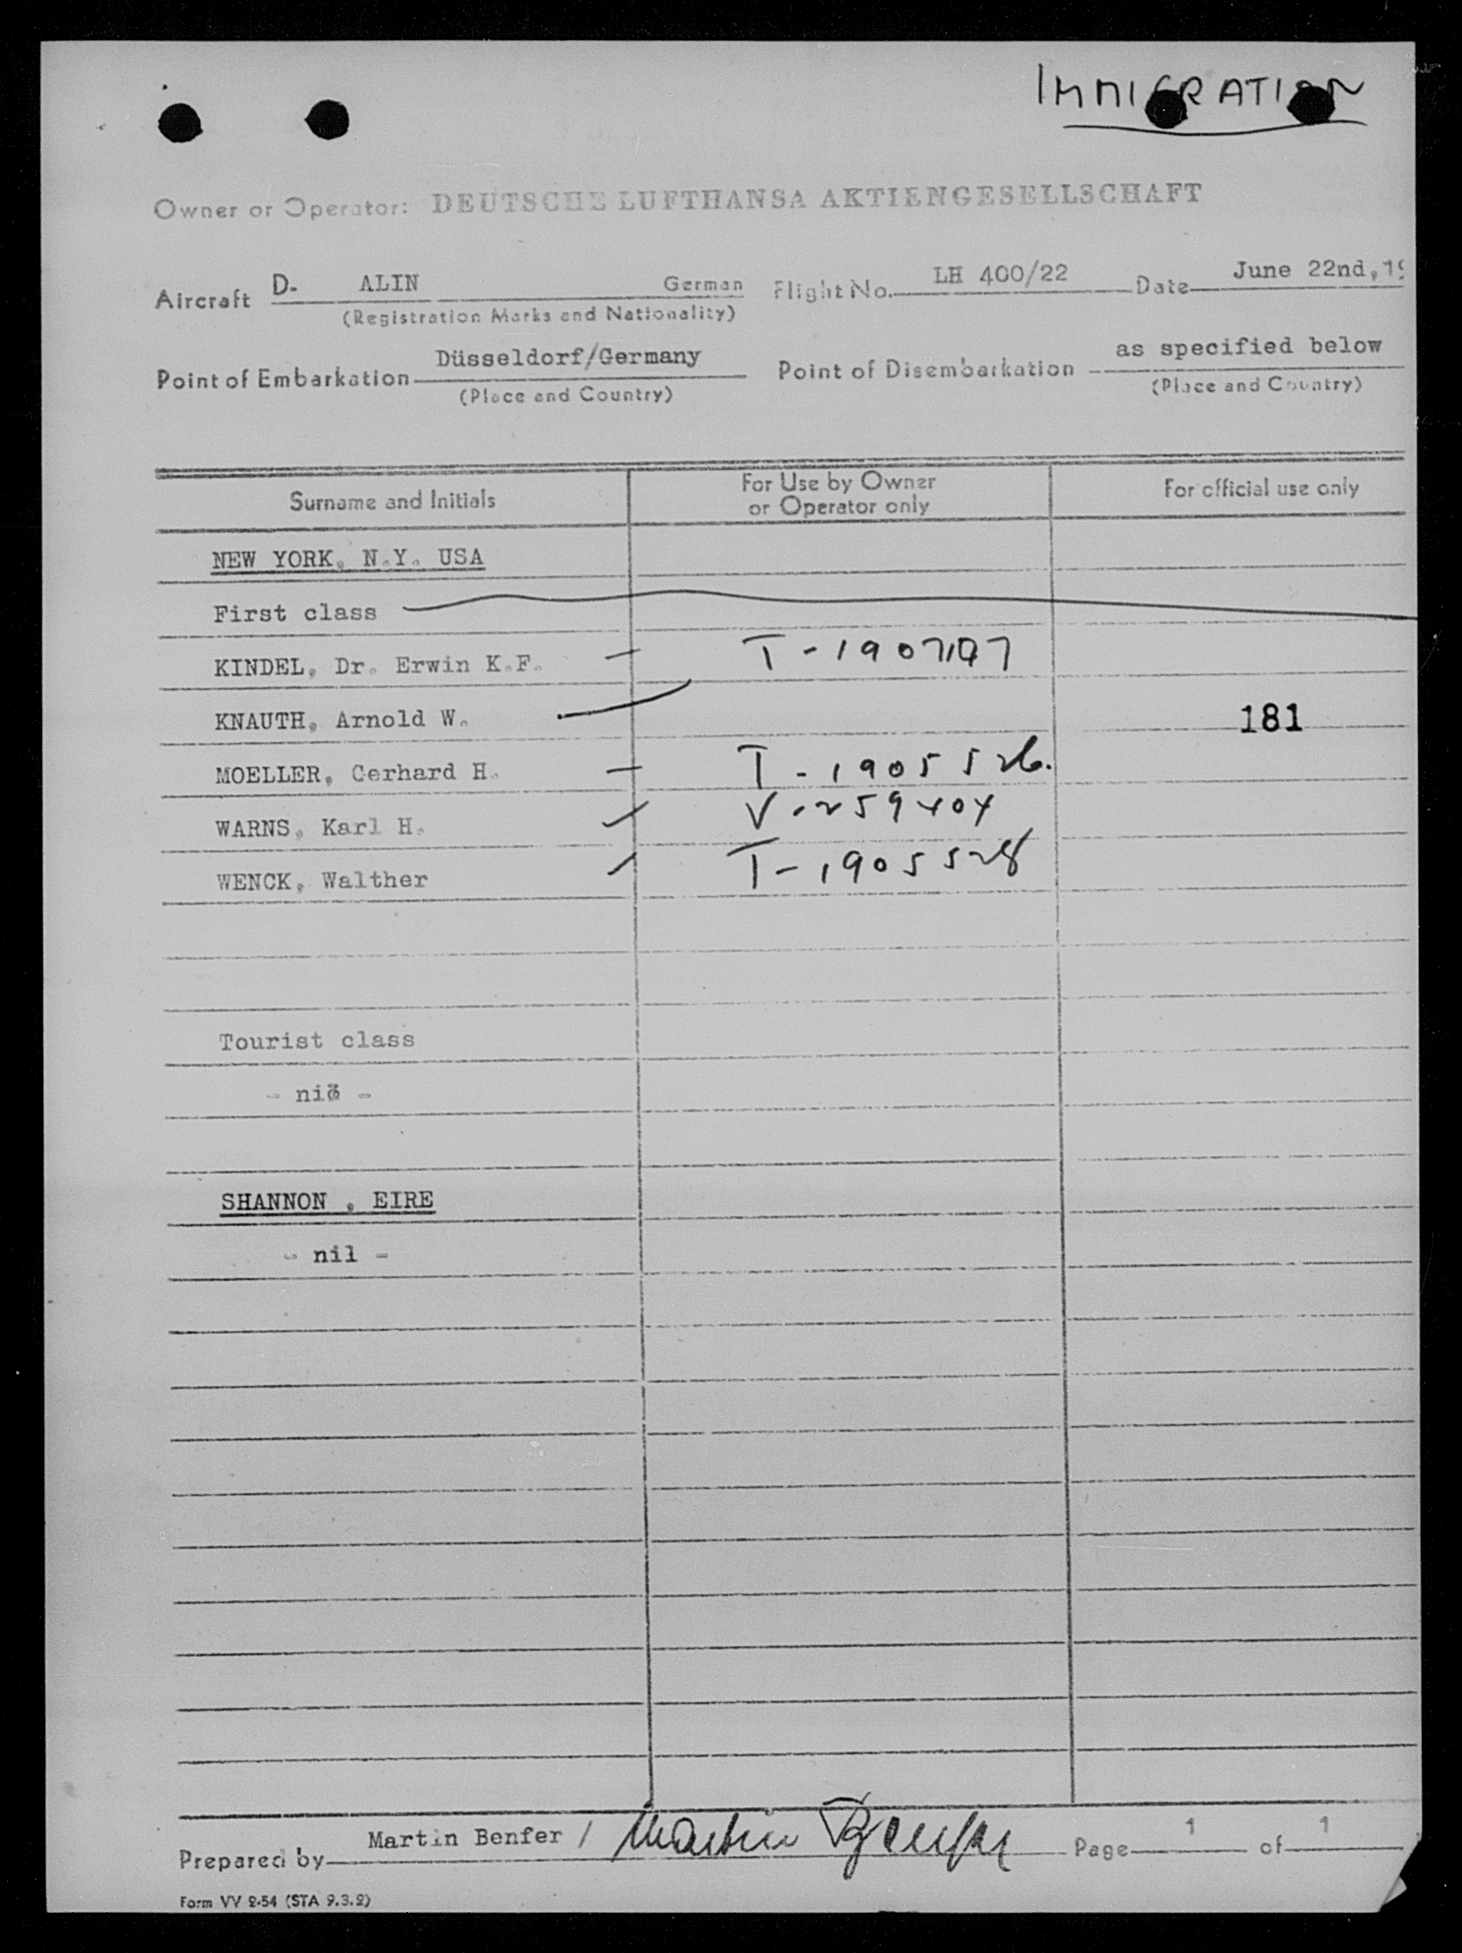 IMMIGRATION
Owner or Operator: DEUTSCHE LUFTHANSA AKTIENGESELLSCHAFT
Aircraft D- ALIN German Flight No. LH 400/22 Date June 22nd, 19
(Registration Marks and Nationality)
Point of Embarkation Düsseldorf/Germany Point of Disembarkation as specified below
(Place and Country) (Place and Country)
Surname and Initials For Use by Owner or Operator only For official use only
NEW YORK, N.Y. USA
First class
KINDEL, Dr. Erwin K.F.
KNAUTH, Arnold W. 181
MOELLER, Gerhard H. T-1905526.
WARNS, Karl H. V-259404
WENCK, Walther T-1905528
Tourist class
- nil -
SHANNON, EIRE
- nil -
Prepared by Martin Benfer / Martin Benfer Page 1 of 1
Form VV 2-54 (STA 9.3.2)